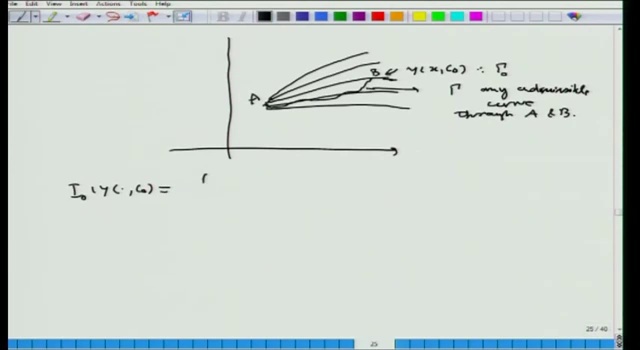 File Edit View Insert Actions Tools Help
B y(x, C₀) : Γ₀
A
Γ any admissible
curve
through A & B.
I₀(y(·, C₀) =
25 / 40
25